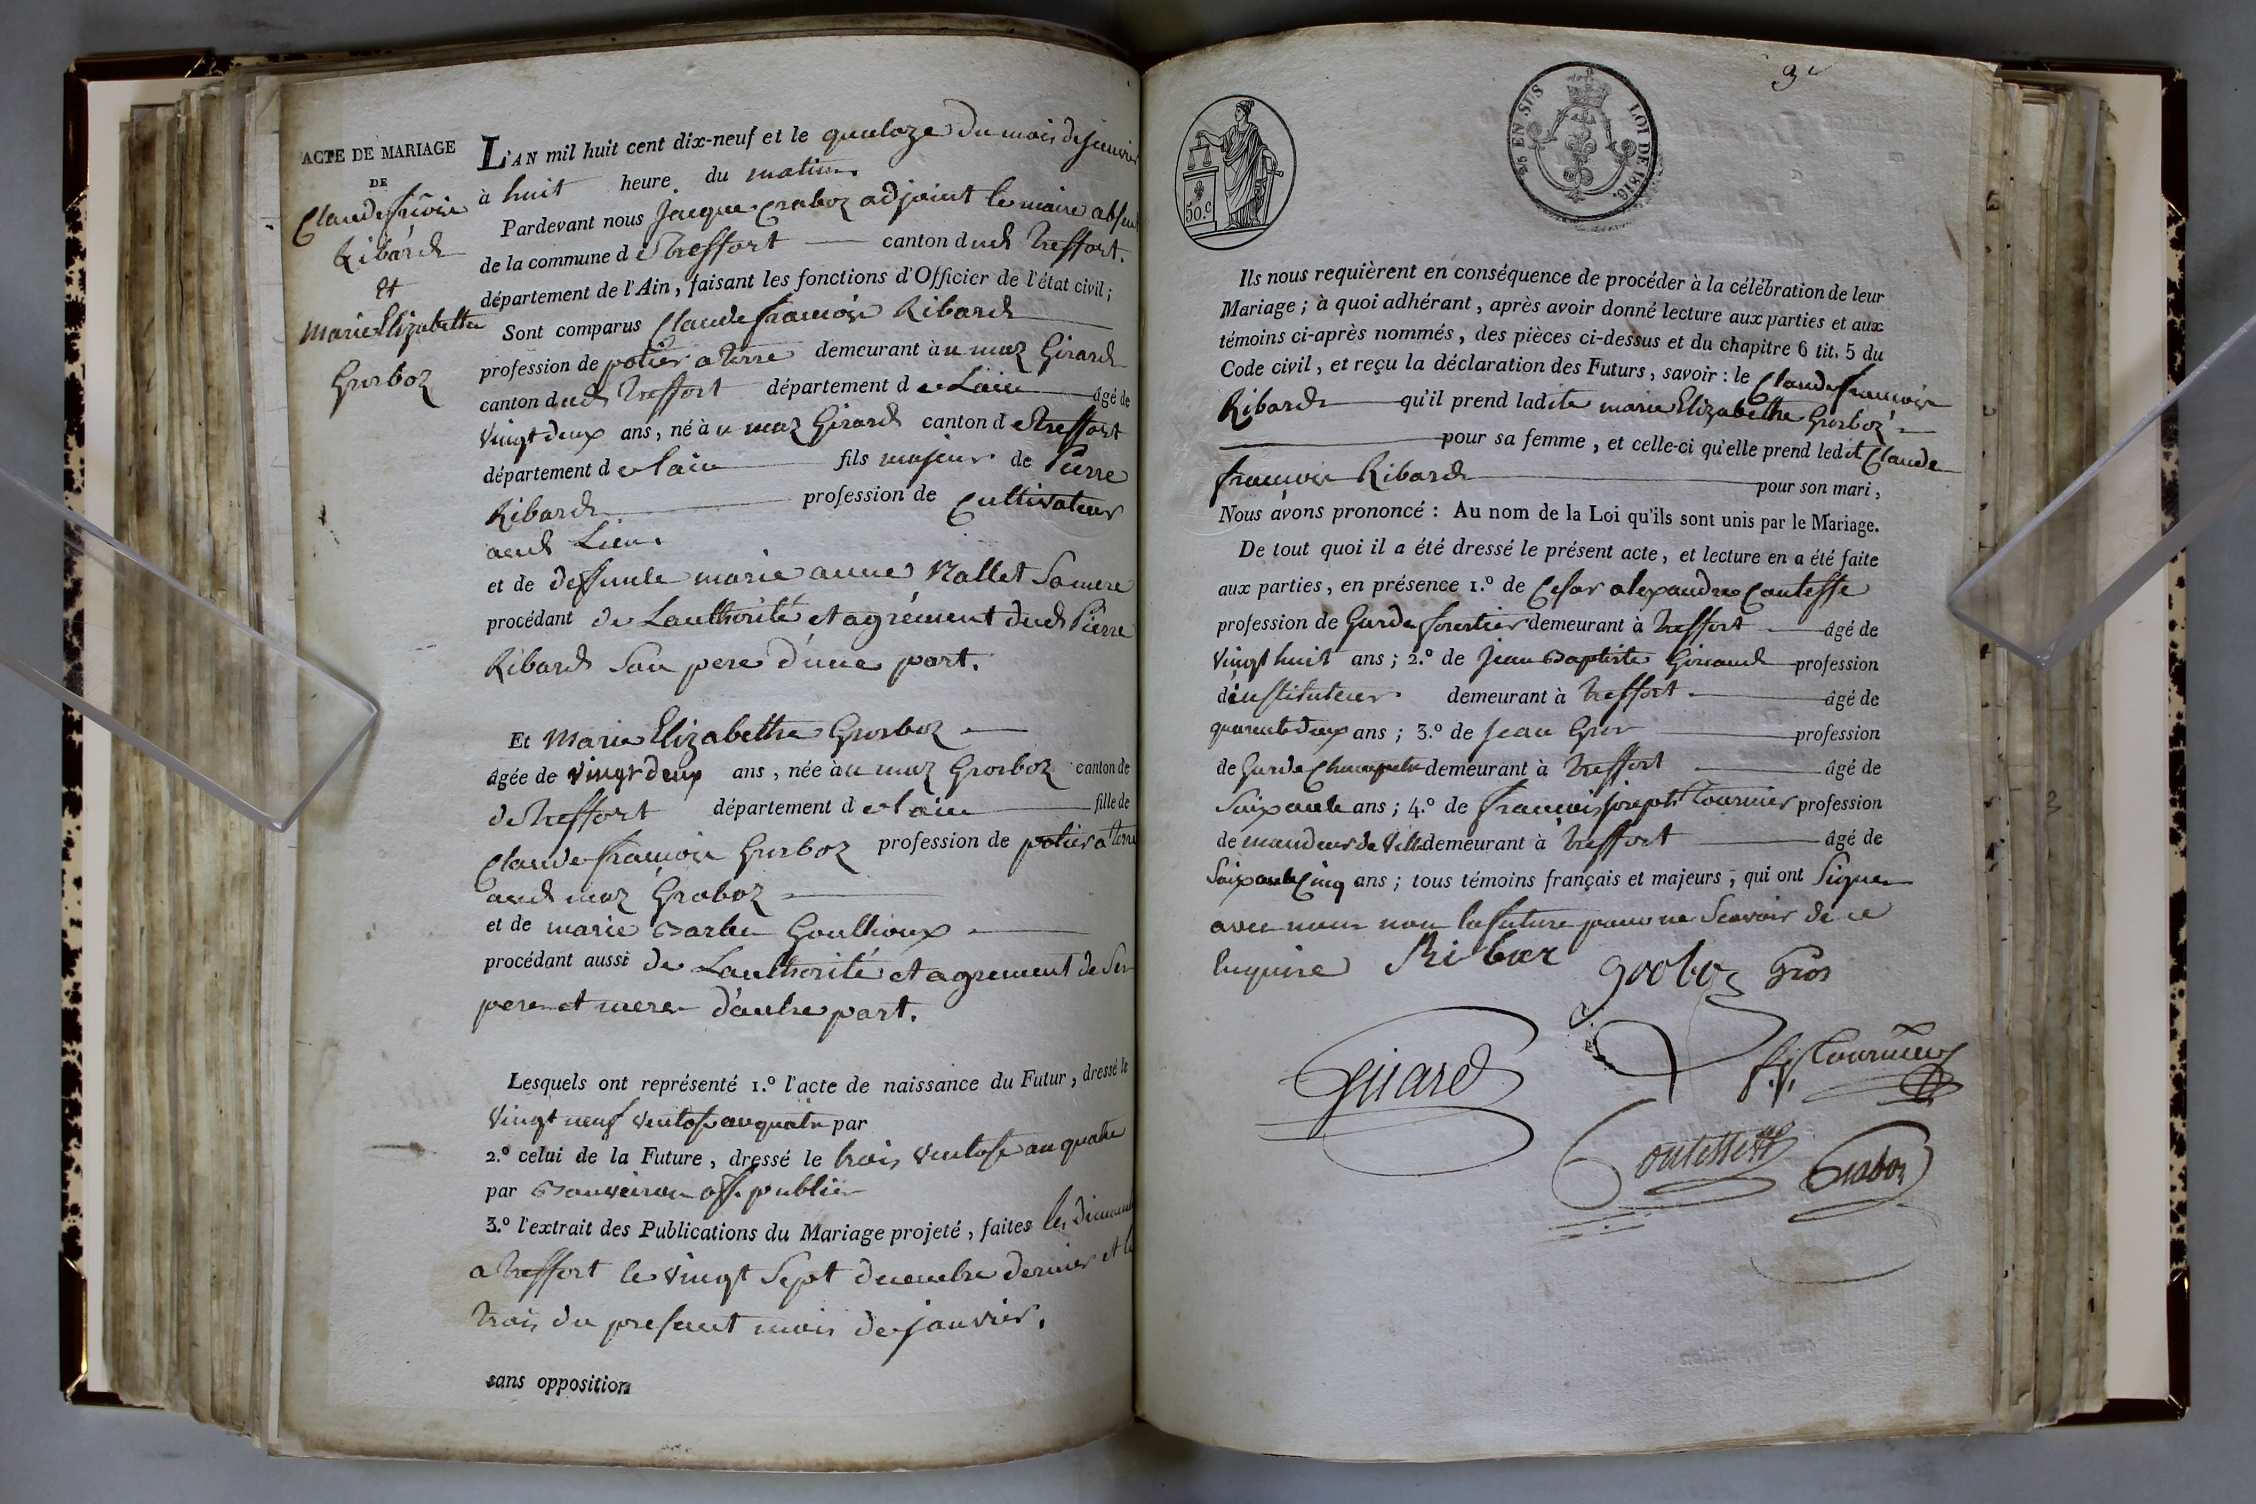 ACTE DE MARIAGE
DE
Claude françois
Ribard
et
Marie Elizabethe
Grosboz
L'AN mil huit cent dix-neuf et le quatoze du mois de janvier
à huit heure du matin.
Pardevant nous Jacque Craboz adjoint le maire absent
de la commune de treffort canton dud treffort.
département de l'Ain, faisant les fonctions d'Officier de l'état civil;
Sont comparus Claude françois Ribard
profession de potier a terre demeurant àu maz Girard
canton dud treffort département de Lain âgé de
vingt deux ans, né àu maz Girard canton de treffort
département de lain fils majeur de Pierre
Ribard profession de Cultivateur
aud Lieu.
et de deffunte marie anne Nallet Sa mere
procédant de Lauthorité et agrément dud Pierre
Ribard Son pere d'une part.
Et Marie Elizabethe Grosboz
âgée de vingt deux ans, née àu maz Grosboz canton de
de treffort département de lain fille de
Claude françois Grosboz profession de potier a terre
aud maz Groboz
et de marie Barbe Goullioux
procédant aussi de Lauthorité et agrement de Ses
pere et mere d'autre part.
Lesquels ont représenté 1.º l'acte de naissance du Futur, dressé le
vingt neuf ventose an quatre par
2.º celui de la Future, dressé le trois ventose an quatre
par off. public
3.º l'extrait des Publications du Mariage projeté, faites les
a treffort le vingt Sept decembre dernier et le
trois du presant mois de janvier.
sans opposition
3e
50.c
25 EN SUS
LOI DE 1816.
Ils nous requièrent en conséquence de procéder à la célébration de leur
Mariage; à quoi adhérant, après avoir donné lecture aux parties et aux
témoins ci-après nommés, des pièces ci-dessus et du chapitre 6 tit. 5 du
Code civil, et reçu la déclaration des Futurs, savoir: le Claude françois
Ribard qu'il prend ladite marie Elizabethe Grosboz
pour sa femme, et celle-ci qu'elle prend ledit Claude
françois Ribard pour son mari,
Nous avons prononcé: Au nom de la Loi qu'ils sont unis par le Mariage.
De tout quoi il a été dressé le présent acte, et lecture en a été faite
aux parties, en présence 1.º de Cesar alexandre Contesse
profession de Garde forestier demeurant à treffort âgé de
vingt huit ans; 2.º de Jean Baptiste Girard profession
d'instituteur demeurant à treffort âgé de
quarante deux ans; 3.º de Jean Gros profession
de Garde Champetre demeurant à treffort âgé de
Soixante ans; 4.º de françois joseph tournier profession
de mandeur de Ville demeurant à treffort âgé de
Soixante Cinq ans; tous témoins français et majeurs, qui ont Signe
avec nous non la future pour ne Scavoir de ce
Enquise Ribar Groboz Gros
Girard
f. j. Tournier
Contesse Craboz